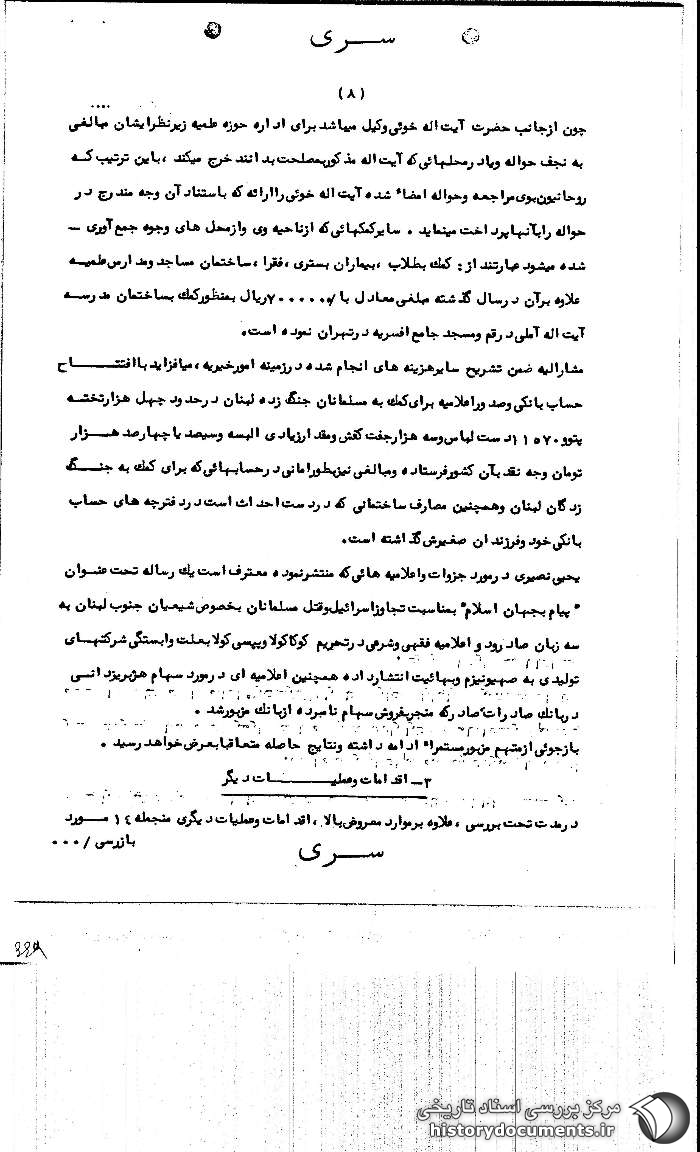 سری
(۸)
چون ازجانب حضرت آیت اله خوئی وکیل میباشد برای اداره حوزه علمیه زیرنظرایشان مبالغی
به نجف حواله ویاد رمحلهائی که آیت اله مذکوربمصلحت بدانند خرج میکند ، باین ترتیب که
روحانیون بوی مراجعه وحواله امضاء شده آیت اله خوئی راارائه که باستناد آن وجه مندرج در
حواله رابآنها پرداخت مینماید . سایرکمکهائی که ازناحیه وی وازمحل های وجوه جمع آوری -
شده میشود عبارتند از : کمک بطلاب ، بیماران بستری ، فقرا ، ساختمان مساجد ومدارس علمیه
علاوه برآن درسال گذشته مبلغی معادل با ریال بمنظورکمک بساختمان مدرسه
آیت اله آملی درقم ومسجد جامع افسریه درتهران نموده است.
مشارالیه ضمن تشریح سایرهزینه های انجام شده درزمینه امورخیریه ، میافزاید باافتتاح
حساب بانکی وصدوراعلامیه برای کمک به مسلمانان جنگ زده لبنان درحدود چهل هزارتخته
پتوو ۱۱۵۷۰ دست لباس وسه هزارجفت کفش ومقدارزیادی البسه وسیصد یاچهارصد هزار
تومان وجه نقد بآن کشورفرستاده ومبالغی نیزبطورامانی درحسابهائی که برای کمک به جنگ
زدگان لبنان وهمچنین مصارف ساختمانی که دردست احداث است دردفترچه های حساب
بانکی خود وفرزندان صغیرش گذاشته است.
یحیی نصیری درمورد جزوات واعلامیه هائی که منتشرنموده معترف است یک رساله تحت عنوان
"پیام بجهان اسلام" بمناسبت تجاوزاسرائیل وقتل مسلمانان بخصوص شیعیان جنوب لبنان به
سه زبان صادر ود واعلامیه فقهی وشرعی درتحریم کوکاکولا وپپسی کولا بعلت وابستگی شرکتهای
تولیدی به صهیونیزم وبهائیت انتشارداده همچنین اعلامیه ای درمورد سهام هژبریزدانی
دربانک صادرات صادرکه منجربفروش سهام نامبرده ازبانک مزبورشد .
بازجوئی ازمتهم مزبورمستمرا" ادامه داشته ونتایج حاصله متعاقبا بعرض خواهد رسید .
۳- اقدامات وعملیات دیگر
درمدت تحت بررسی ، علاوه برموارد معروض بالا ، اقدامات وعملیات دیگری منجمله ۱۴ مورد
بازرسی /۰۰۰
سری
مرکز بررسی اسناد تاریخی
historydocuments.ir